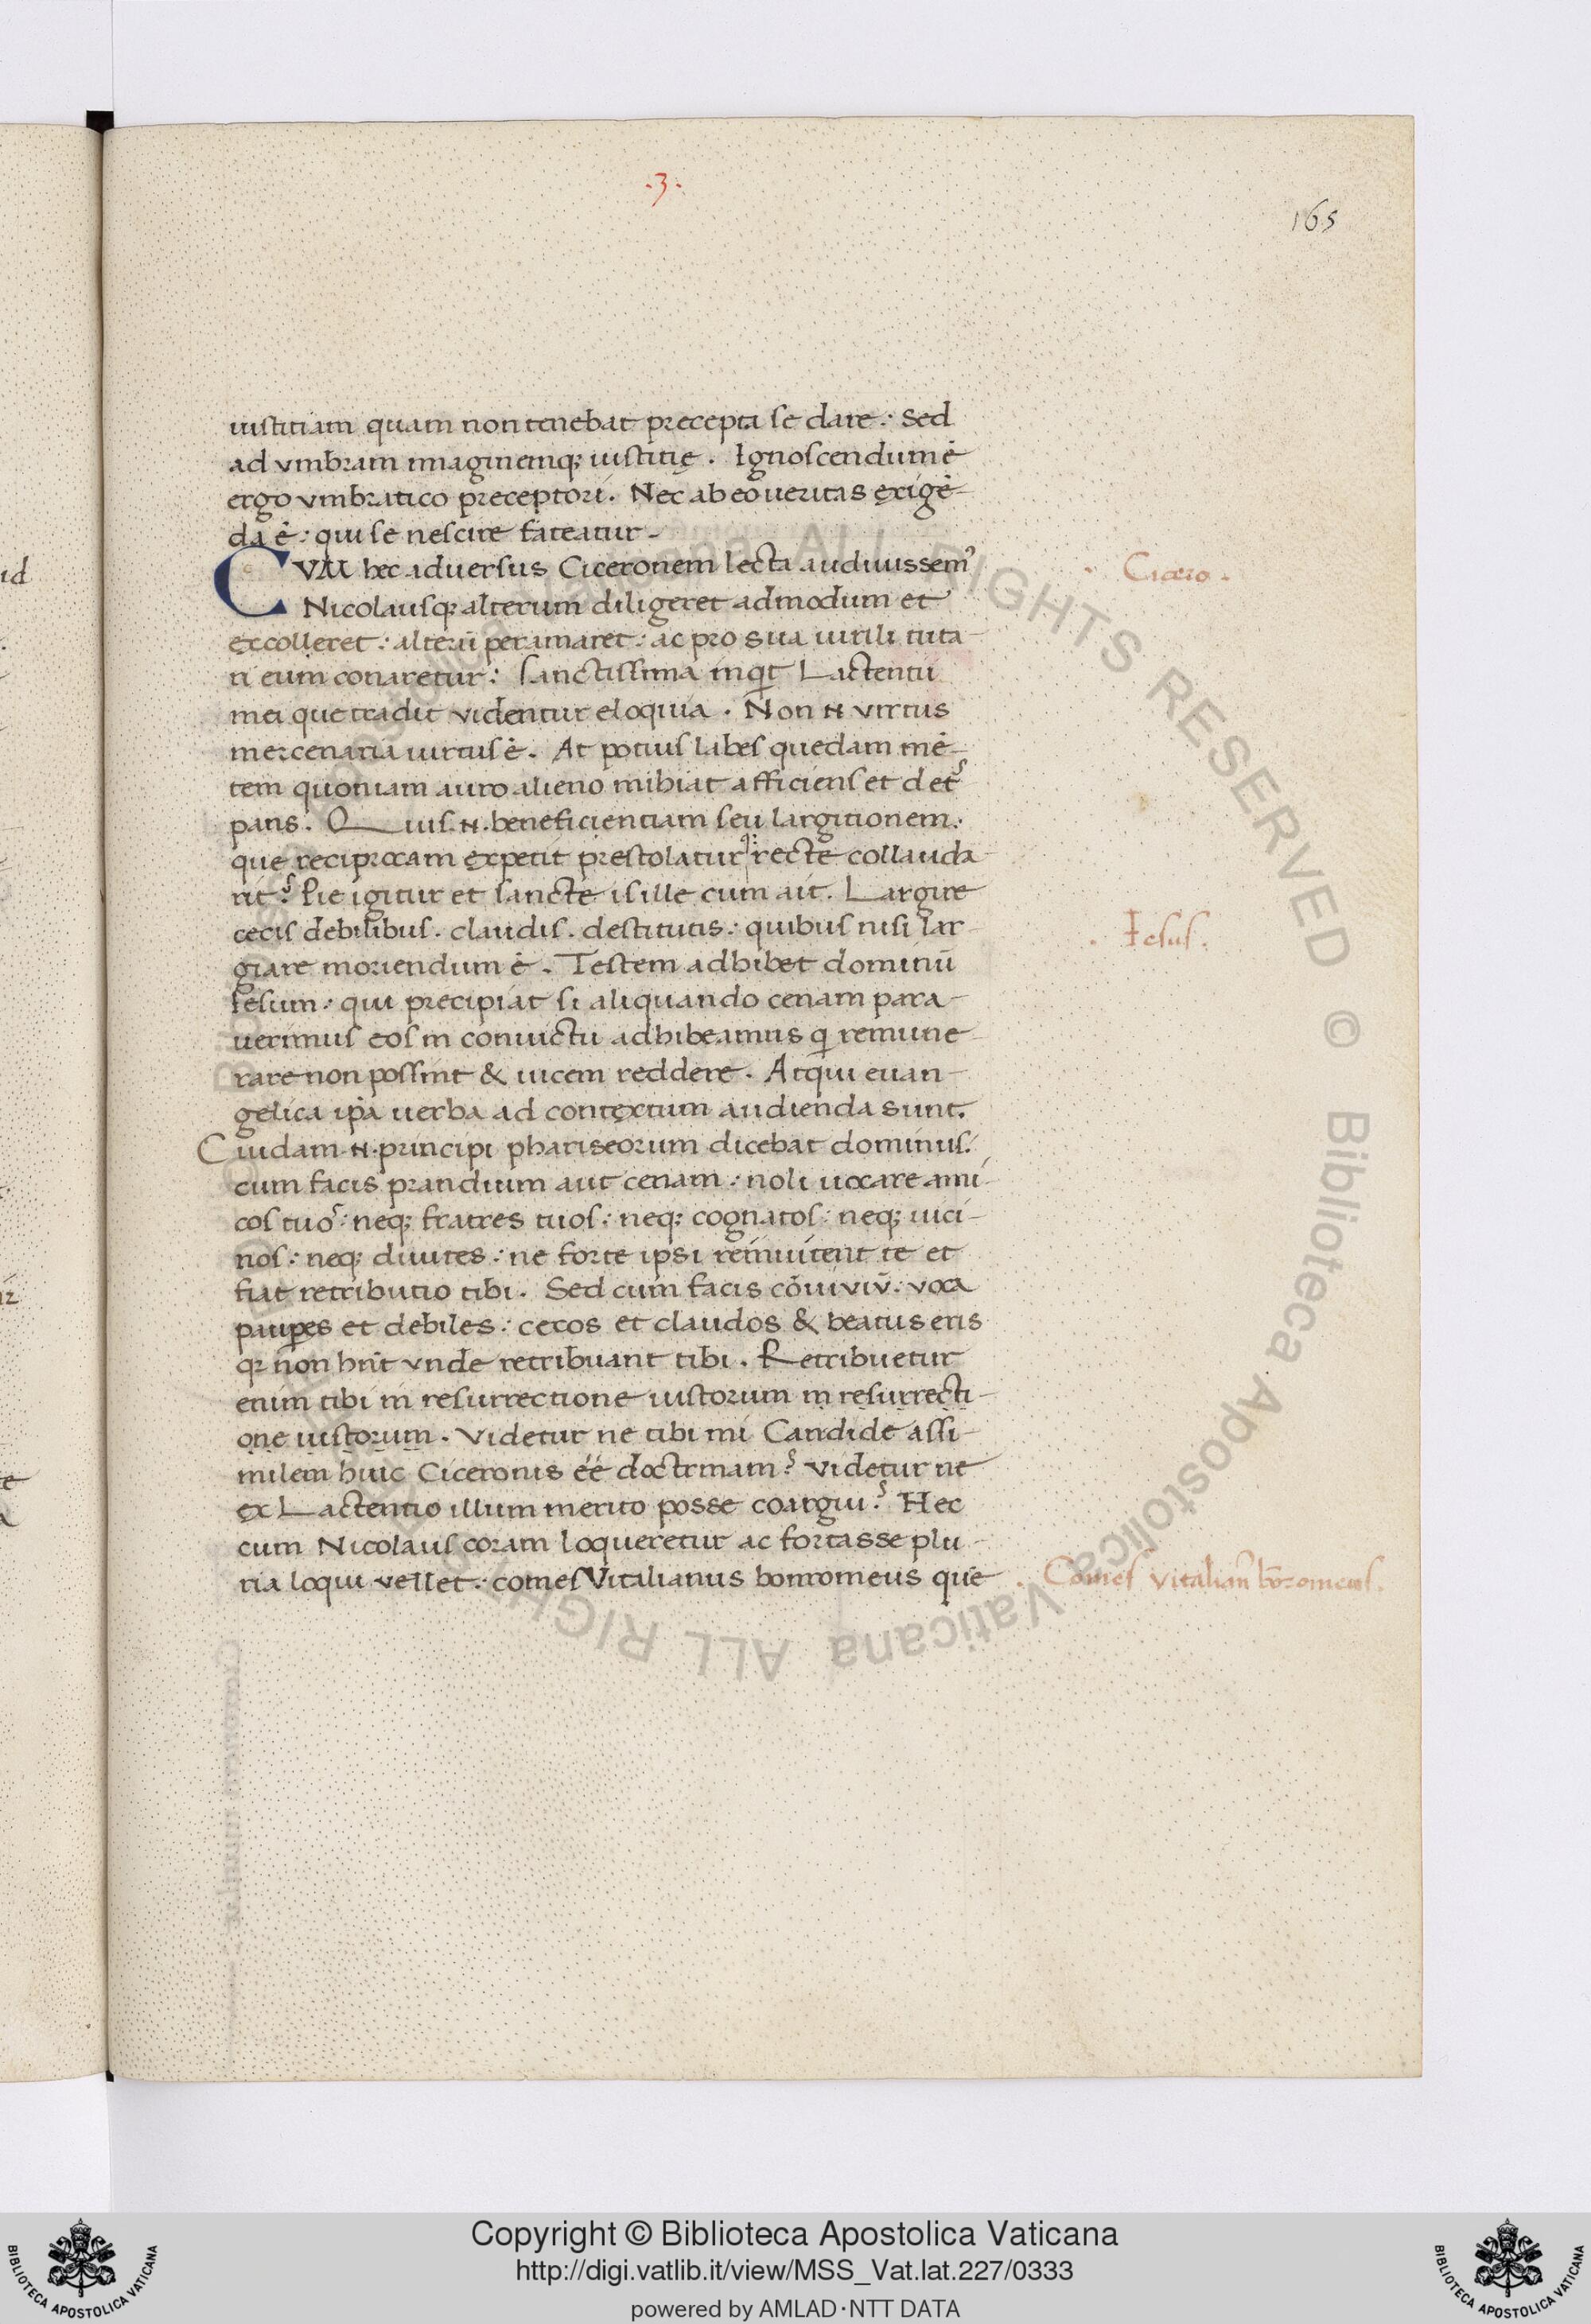 .3.
165
iustitiam quam non tenebat precepta se dare: Sed
ad vmbram imaginemq; iustitię. Ignoscendum ē
ergo vmbratico preceptori. Nec ab eo ueritas exigē-
da ē: qui se nescire fateatur.
CVM hec aduersus Ciceronem lecta audiuissem⁹
Cicero.
Nicolausq; alterum diligeret admodum et
excolleret: alterū peramaret: ac pro sua uirili tuta-
ri eum conaretur: sanctissima inqt Lactentii
mei que tradit videntur eloquia. Non .n. virtus
mercenaria uirtus ē. At potius labes quedam mē-
tem quoniam auro alieno inhiat afficiens et det²
pans. Quis .n. beneficientiam seu largitionem:
que reciprocam expetit prestolaturq; recte collauda-
rit? Pie igitur et sancte is ille cum ait. Largire
cecis debilibus. claudis. destitutis: quibus nisi lar-
Iesus.
giare moriendum ē. Testem adhibet dominū
Iesum: qui precipiat si aliquando cenam para-
uerimus eos in conuictu adhibeamus q remune-
rare non possint & uicem reddere. Atqui euan-
gelica ipa uerba ad contextum audienda sunt.
Cuidam .n. principi phariseorum dicebat dominus:
cum facis prandium aut cenam: noli uocare ami-
cos tuos: neq; fratres tuos: neq; cognatos: neq; uici-
nos: neq; diuites: ne forte ipsi reinuitent te et
fiat retributio tibi. Sed cum facis cōuiviū: voca
paupes et debiles: cecos et claudos & beatus eris
q2 non hnt vnde retribuant tibi. Retribuetur
enim tibi in resurrectione iustorum in resurrecti-
one iustorum. Videtur ne tibi mi Candide assi-
milem huic Ciceronis éé doctrinam? videtur ne
ex Lactentio illum merito posse coargui? Hec
cum Nicolaus coram loqueretur ac fortasse plu-
ria loqui vellet: comes Vitalianus bonromeus quē
Comes vitalian⁹ bōromeus.
Copyright © Biblioteca Apostolica Vaticana
http://digi.vatlib.it/view/MSS_Vat.lat.227/0333
powered by AMLAD·NTT DATA